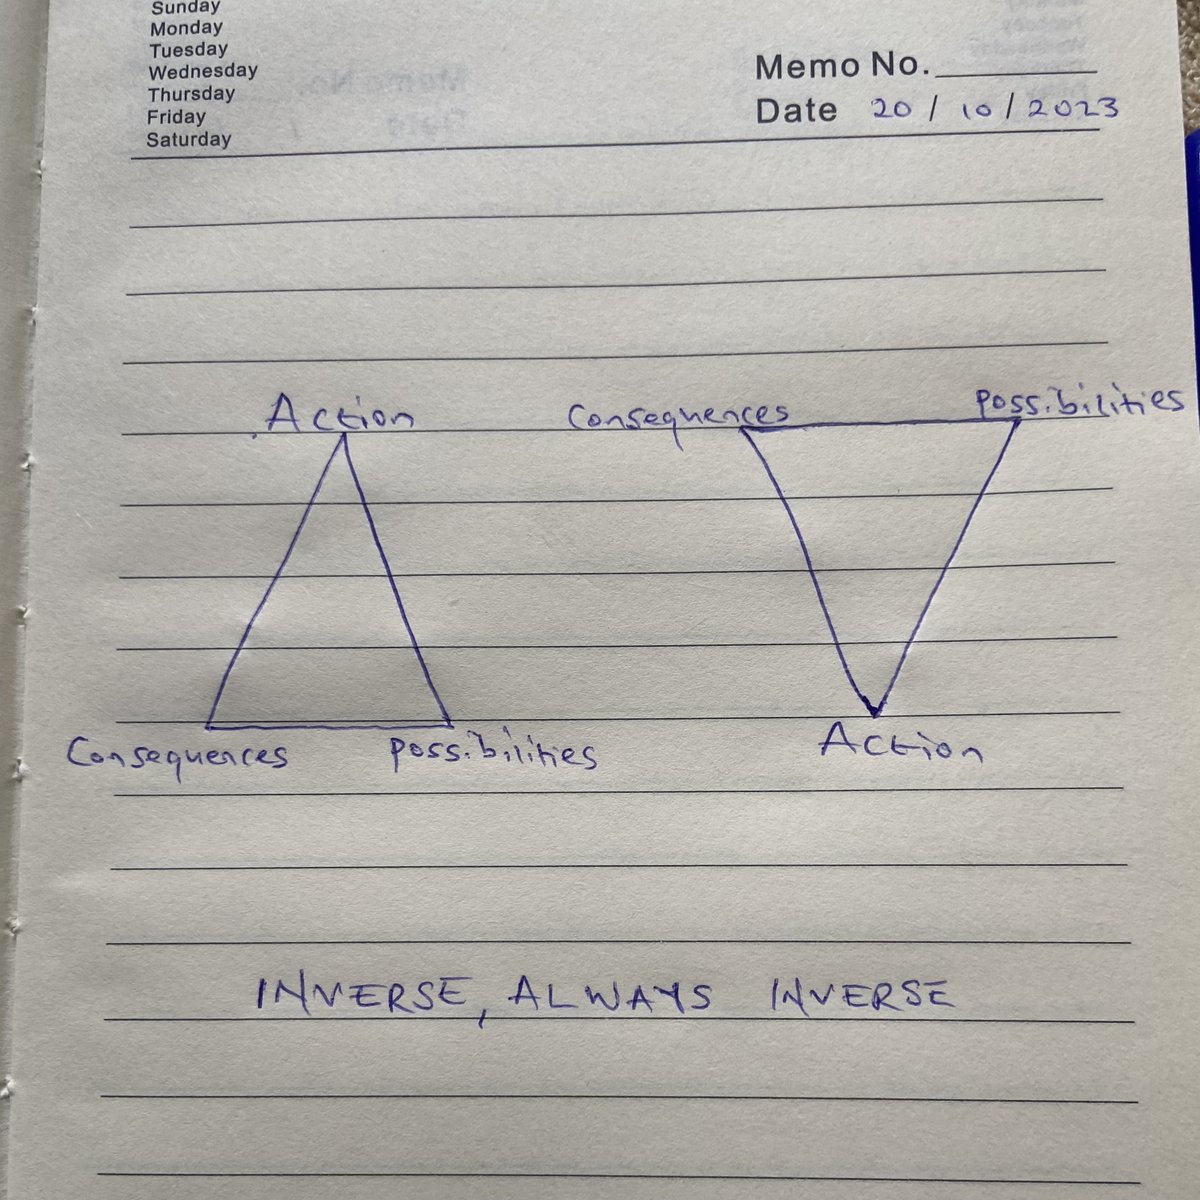 Sunday
Monday
Tuesday
Wednesday
Thursday
Friday
Saturday
Memo No.
Date 20 / 10 / 2023
Action
Consequences Possibilities
Consequences Possibilities
Action
INVERSE, ALWAYS INVERSE